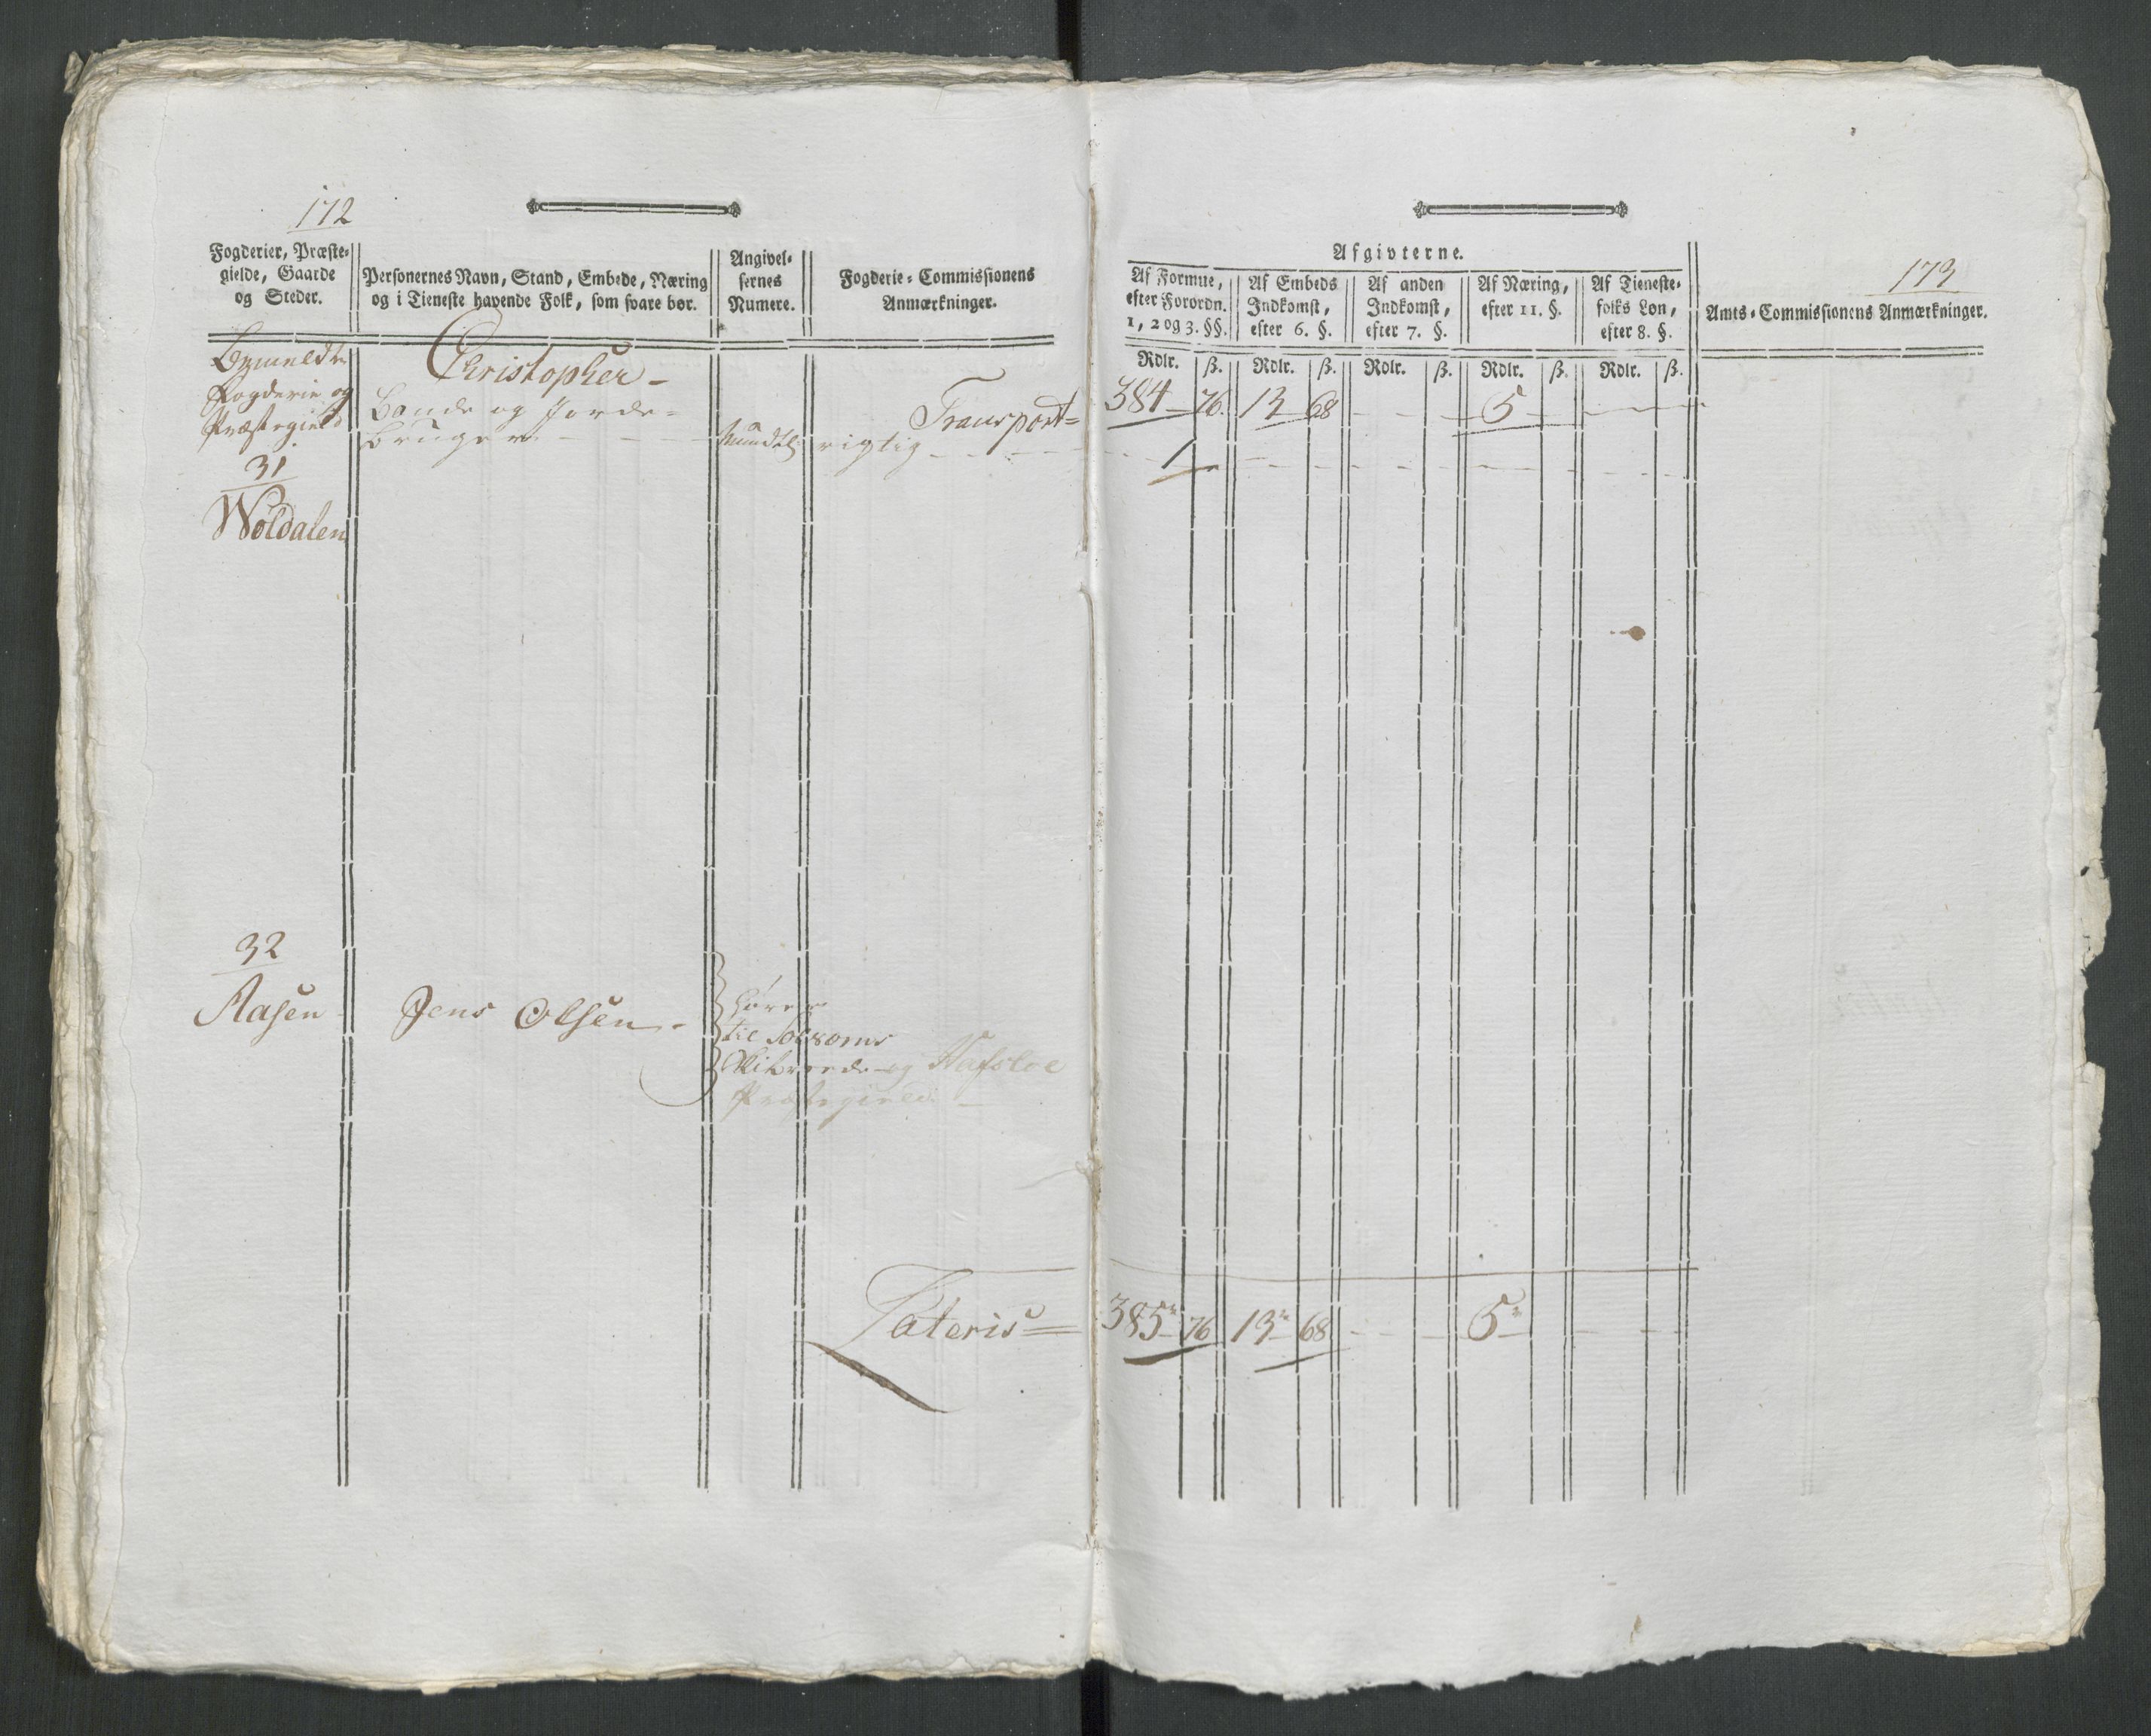 172
Fogderier, Præste-
gielde, Gaarde
og Steder.
Personernes Navn, Stand, Embede, Næring
og i Tieneste havende Folk, som svare bør.
Angivel-
sernes
Numere.
Fogderie-Commissionens
Anmærkninger.
Bemeldte
Fogderie og
Præstegield
Christopher -
Bonde og Jorde-
bruger
mundtl:
rigtig
Transport
31
Woldalen
32
Aasen
Jens Olsen
hører
til Solvorns
Skibrede og Hafsloe
Præstegield
Lateris
173
Afgivterne.
Af Formue,
efter Forordn.
1, 2 og 3. §§.
Af Embeds
Indkomst,
efter 6. §.
Af anden
Indkomst,
efter 7. §.
Af Næring,
efter 11. §.
Af Tieneste-
folks Løn,
efter 8. §.
Amts-Commissionens Anmærkninger.
Rdlr. ß. Rdlr. ß. Rdlr. ß. Rdlr. ß. Rdlr. ß.
384 76 13 68 - - 5 -
1
385 76 13 68 - - 5 -